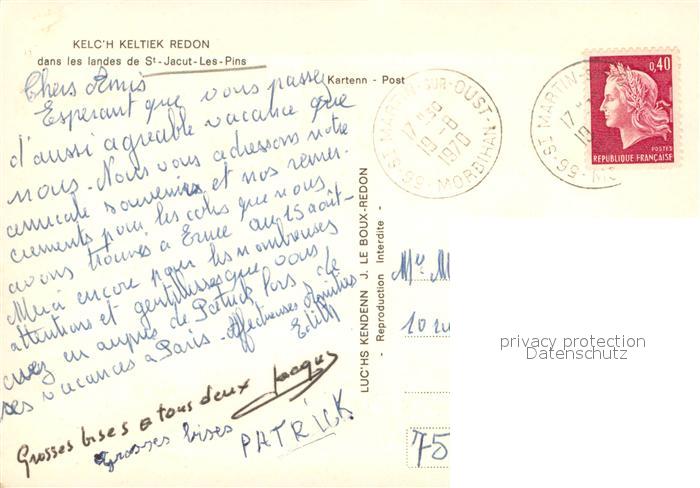 KELC'H KELTIEK REDON
dans les landes de St-Jacut-Les-Pins
Kartenn - Post
Chers Amis
Espérant que vous passez
d'aussi agréable vacance que
nous. Nous vous adressons notre
amicale souvenirs et nos remer-
ciements pour les colis que nous
avons trouvés à Ernée au 15 août -
Merci encore pour les nombreuses
attentions et gentillesses que vous
avez eu auprès de Patrick lors de
ses vacances à Paris - Affectueuses Amitiés
Edith
Grosses bises a tous deux Jacques
Grosses bises
PATRICK
LUC'HS KENDENN J. LE BOUX-REDON
- Reproduction Interdite -
ST-MARTIN-SUR-OUST
17 H 30
19 - 8
1970
56 - MORBIHAN
ST-MARTIN-S
17
19
56 - MO
0,40
POSTES
REPUBLIQUE FRANÇAISE
Mr M
10 ru
75
privacy protection
Datenschutz